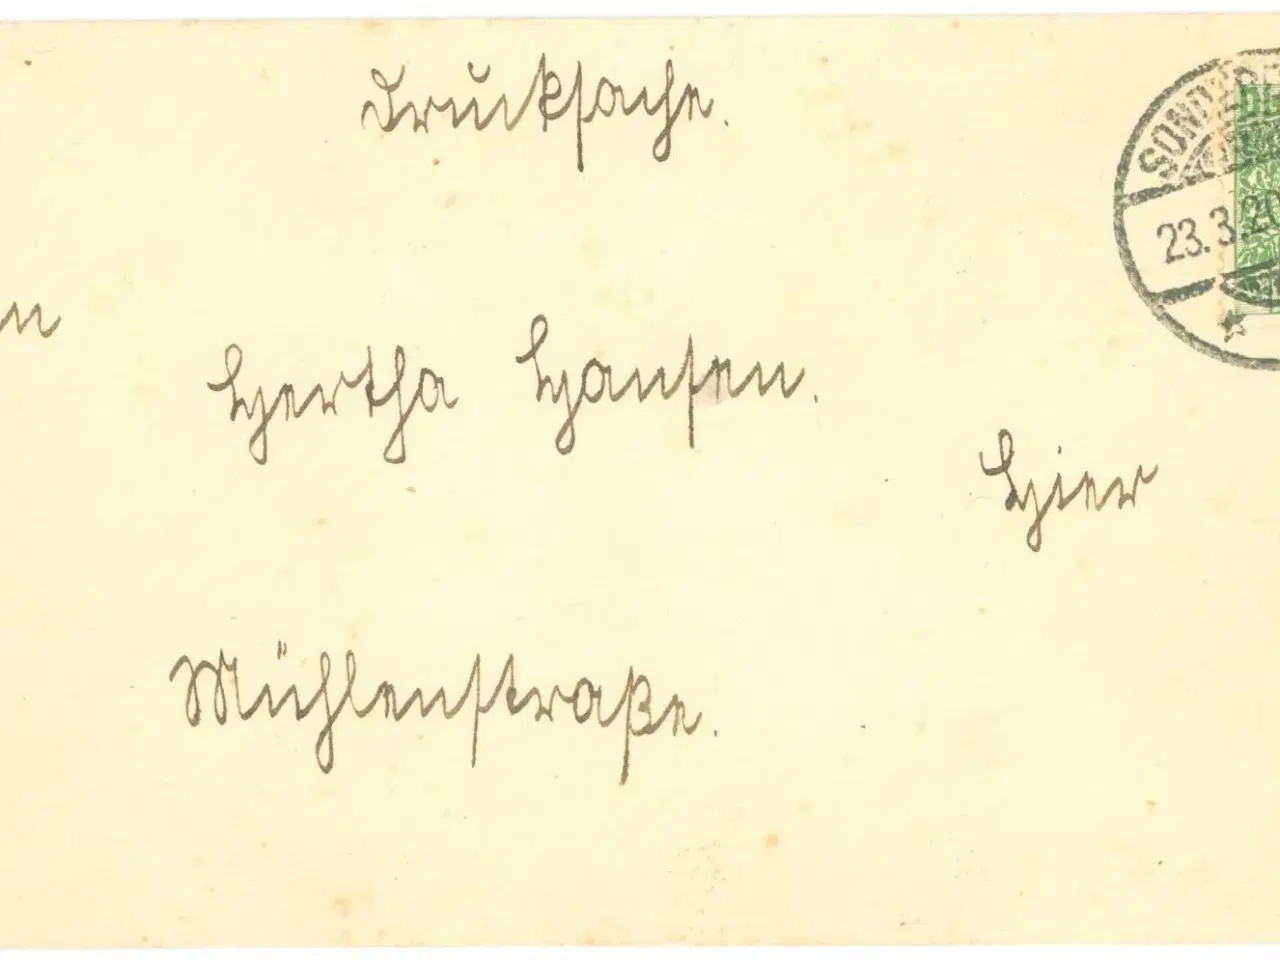 Drucksache.
SONDERB
23.3.20
n
Hertha Hansen.
Hier
Mühlenstraße.